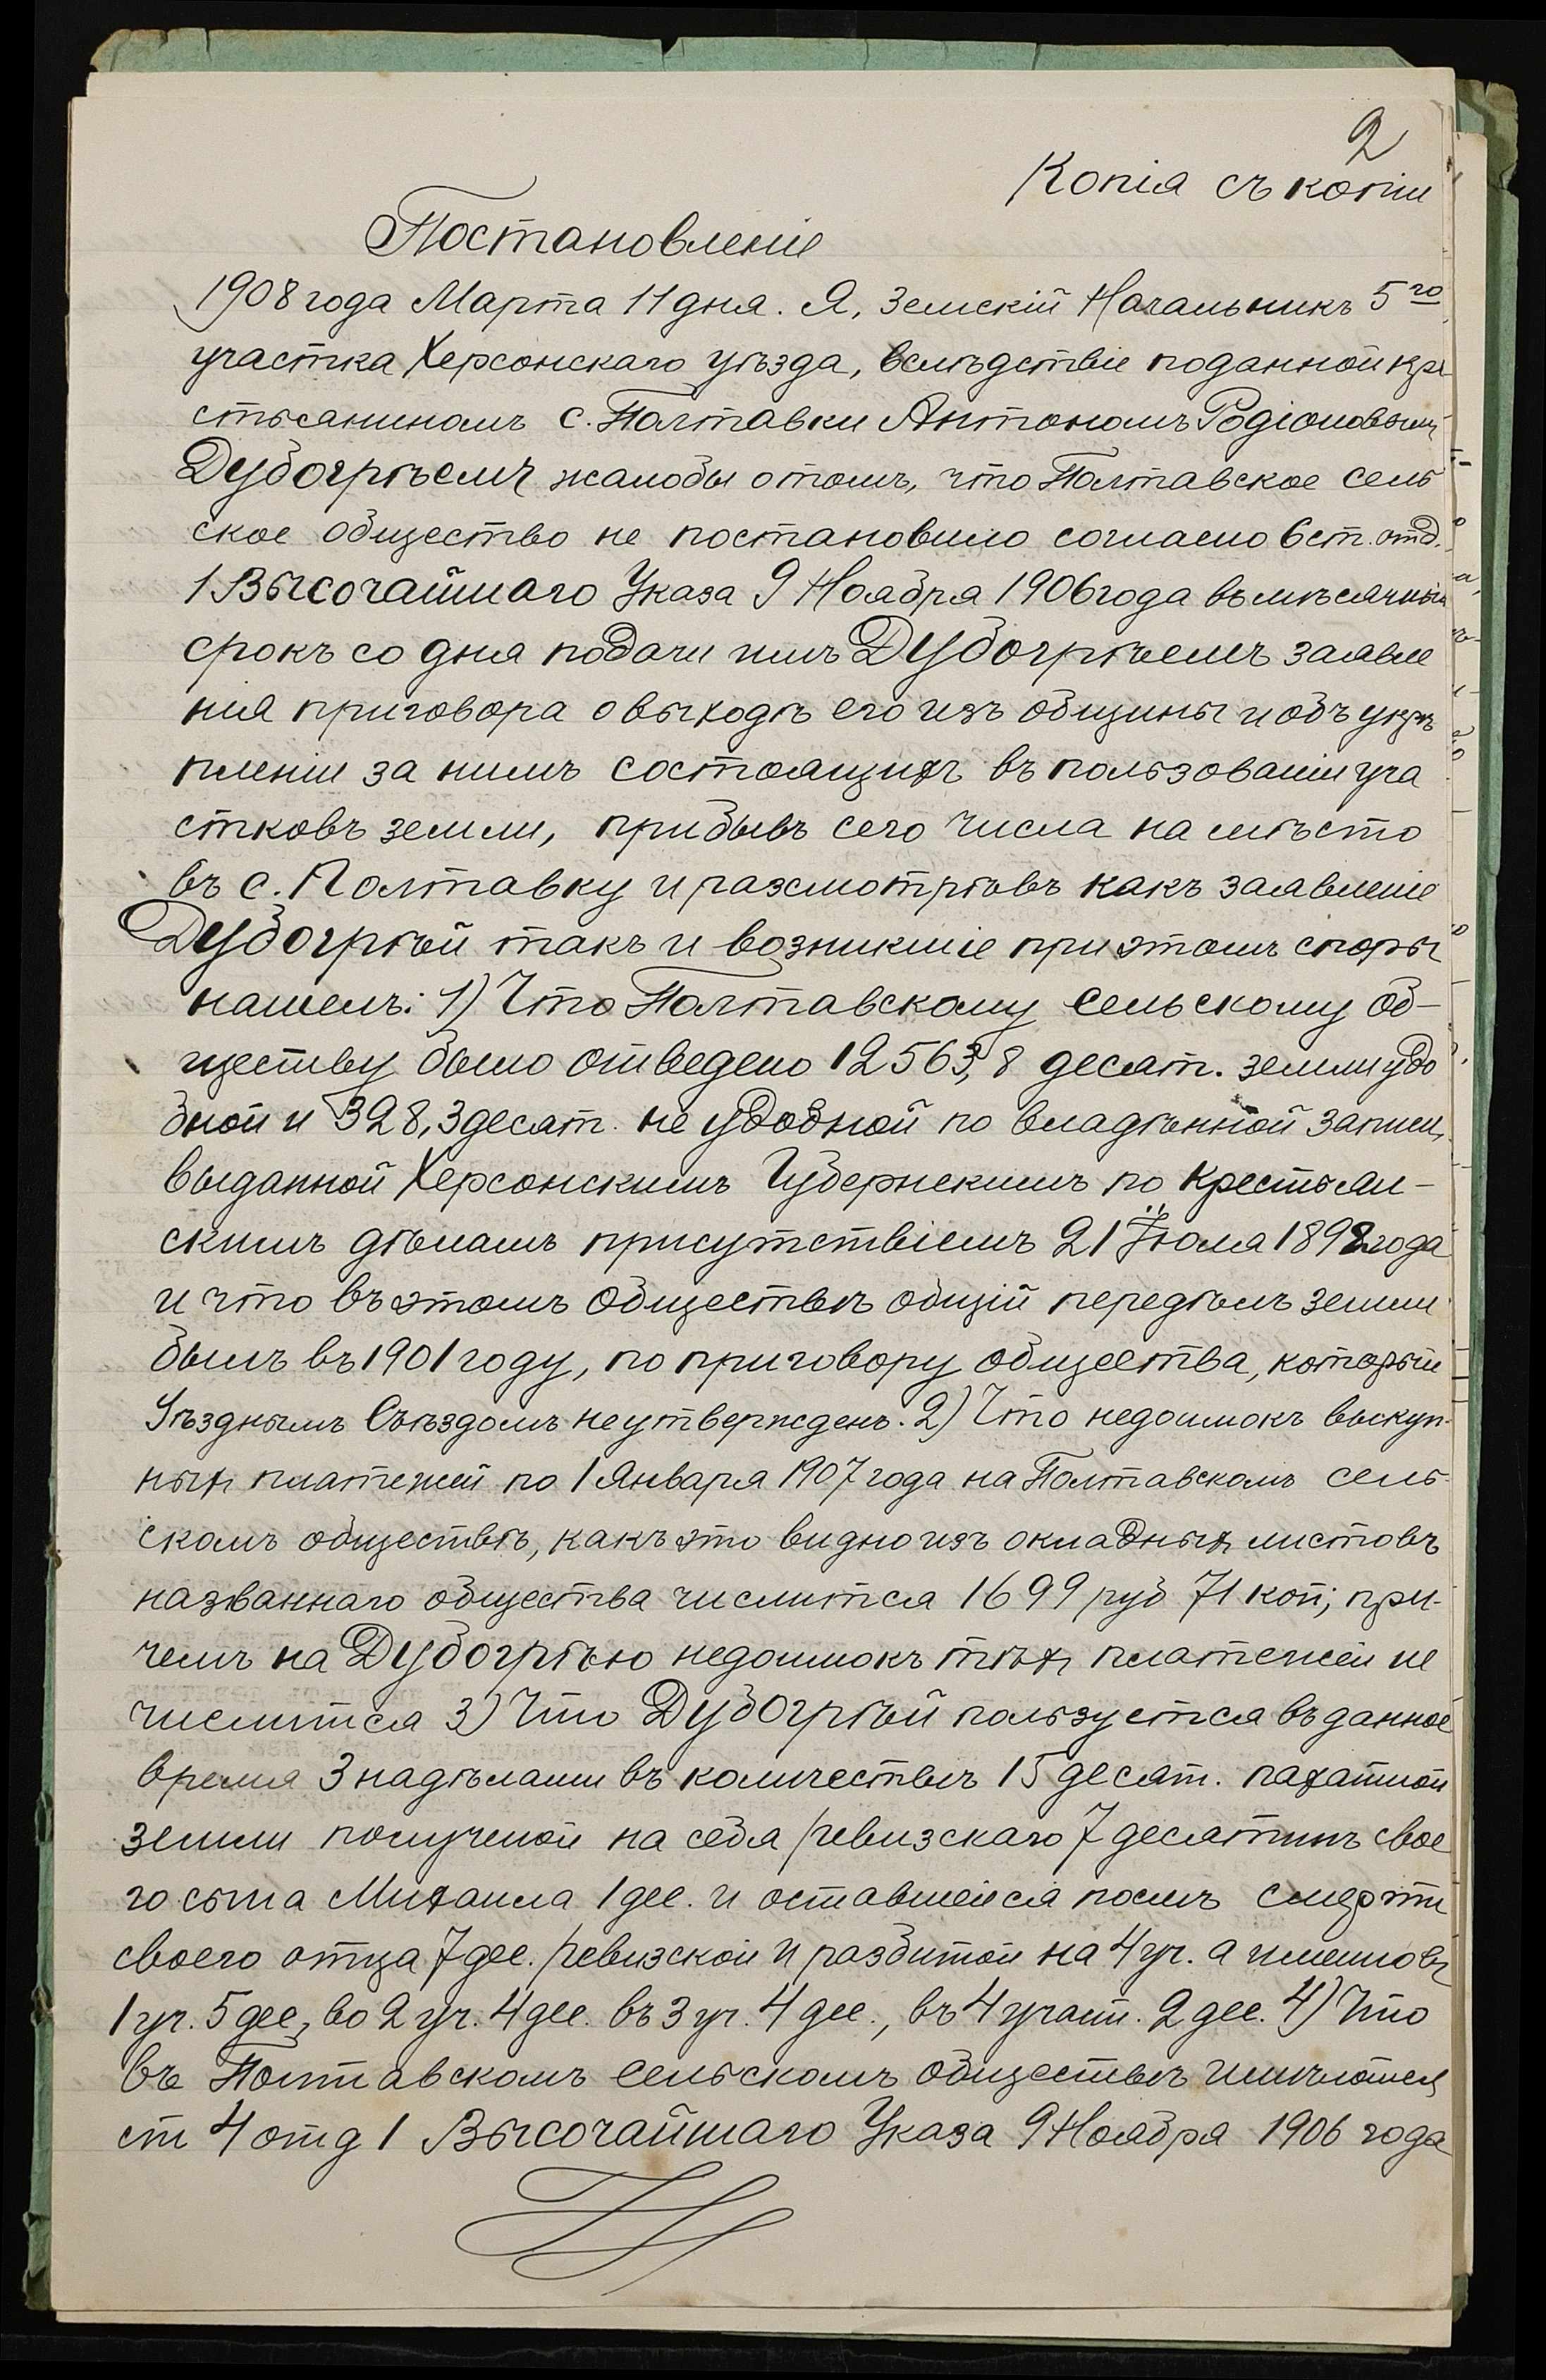 2
Копія съ копіи
Постановленіе
1908 года Марта 11 дня. Я, Земскій Начальникъ 5го
участка Херсонскаго уѣзда, вслѣдствіе поданной кре
стьяниномъ с. Полтавки Антономъ Родіоновымъ
Дубогрѣемъ жалобы о томъ, что Полтавское сель
ское общество не постановило согласно 6 ст. отд.
1 Высочайшаго Указа 9 Ноября 1906 года въ мѣсячный
срокъ со дня подачи имъ Дубогрѣемъ заявле
нія приговора о выходѣ его изъ общины и объ укрѣ
пленіи за нимъ состоящихъ въ пользованіи уча
стковъ земли, прибывъ сего числа на мѣсто
въ с. Полтавку и разсмотрѣвъ какъ заявленіе
Дубогрѣй такъ и возникшіе при этомъ споры
нашелъ: 1) Что Полтавскому сельскому об-
ществу было отведено 12563,8 десят. земли удо
бной и 328,3 десят. не удобной по владѣнной записи,
выданной Херсонскимъ Губернскимъ по крестьян-
скимъ дѣламъ присутствіемъ 21 Іюля 1898 года
и что въ этомъ обществѣ общій передѣлъ земли
былъ въ 1901 году, по приговору общества, который
Уѣзднымъ Съѣздомъ не утвержденъ. 2) Что недоимокъ выкуп-
ныхъ платежей по 1 Января 1907 года на Полтавскомъ сель-
скомъ обществѣ, какъ это видно изъ окладныхъ листовъ
названнаго общества числится 1699 руб 71 коп; при-
чемъ на Дубогрѣю недоимокъ тѣхъ платежей не
числится 3) Что Дубогрѣй пользуется въ данное
время 3 надѣлами въ количествѣ 15 десят. пахатной
земли полученой на себя ревизскаго 7 десятинъ свое
го сына Михаила 1 дес. и оставшейся послѣ смерти
своего отца 7 дес. ревизской и разбитой на 4 уч. а именно въ
1 уч. 5 дес, во 2 уч. 4 дес. въ 3 уч. 4 дес., въ 4 участ. 2 дес. 4) Что
въ Полтавскомъ сельскомъ обществѣ имѣются
ст 4 отд 1 Высочайшаго Указа 9 Ноября 1906 года